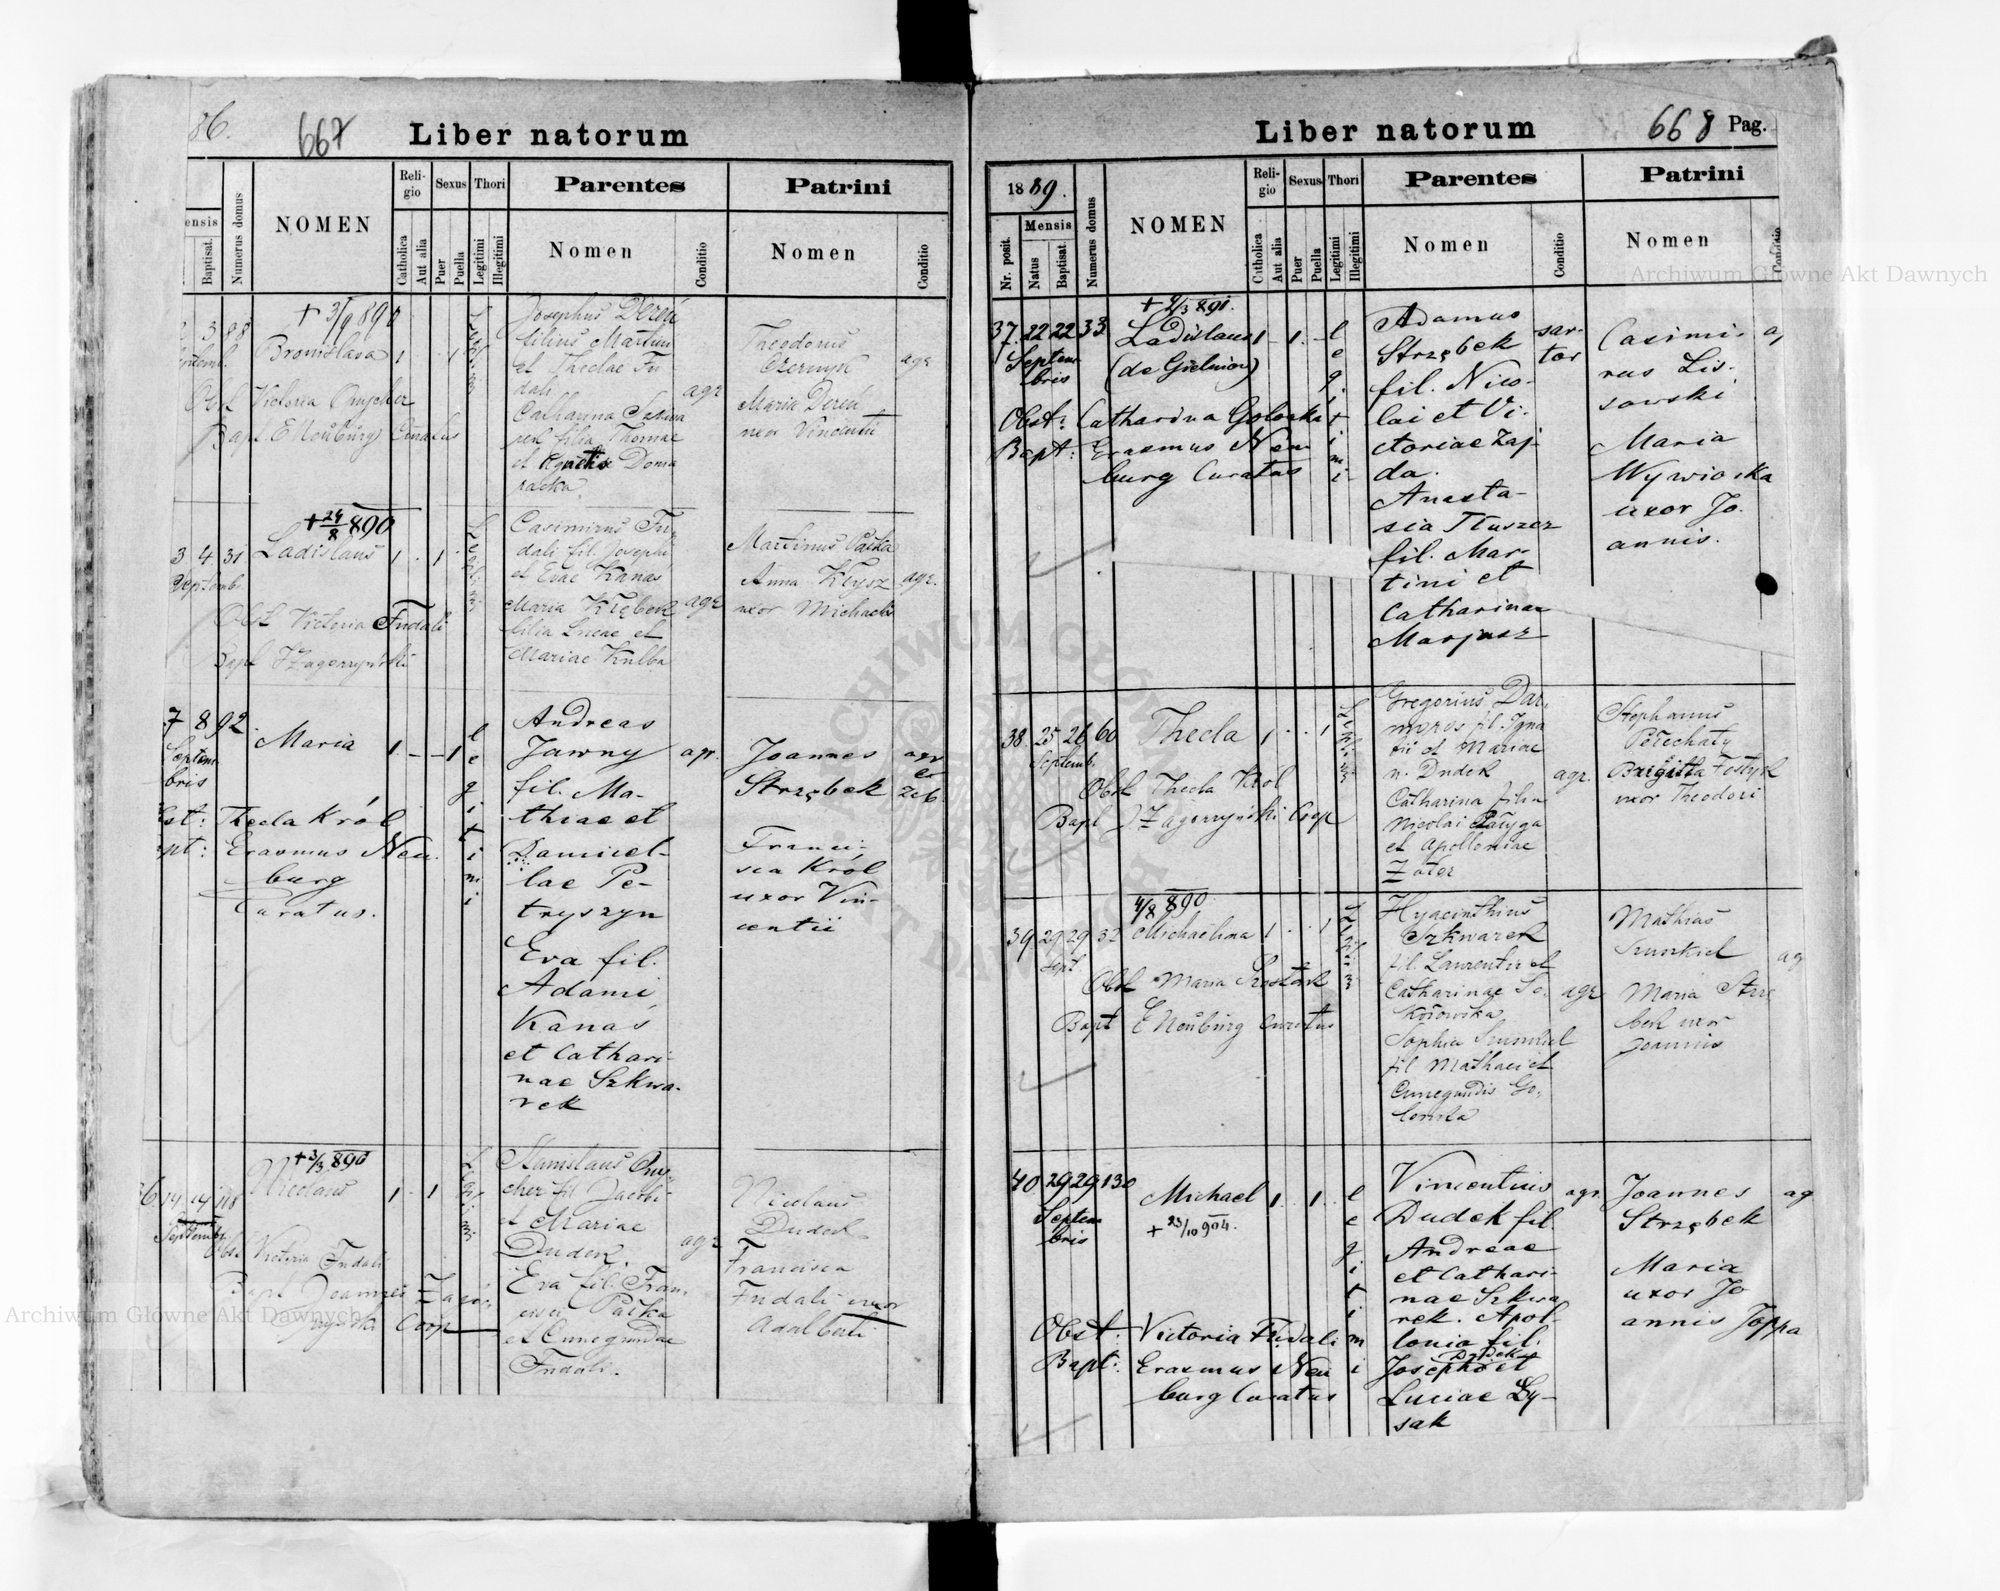 86.
667
Liber natorum
ensis
Baptisat.
Numerus domus
NOMEN
Reli-
gio
Catholica
Aut alia
Sexus
Puer
Puella
Thori
Legitimi
Illegitimi
Parentes
Nomen
Conditio
Patrini
Nomen
Conditio
+ 3/9 890
3 88
Bronislava 1 1
Obst Victoria
Bapt. E Neuburg Curatus
Josephus Dereń
filius Martini
et Theclae Fu
dali
Catharina
filia Thomae
et Agnetis Doma
racka
agr
Theodorus
Czernysz
Maria Dereń
uxor Vincentii
agr
+ 24/8 890
3 4 31
Septemb.
Ladislaus 1 . 1
Obst Victoria Fudali
Bapt J Zagorzyński
Casimirus Fu
dali fil. Josephi
et Evae Kanas
Maria Kłębek
filia Lucae et
Mariae Kulba
agr
Martinus Pałka
Anna Kłysz
uxor Michaelis
agr.
7 8 92.
Septem
bris
Maria 1 . - - 1
legitimi
st: Thecla Król
pt: Erasmus Neu.
burg
Curatus.
Andreas
Jawny
fil. Ma-
thiae et
Daniel-
lae Pe-
tryszyn
Eva fil.
Adami
Kanas
et Cathari-
nae Szkwa-
rek
agr.
Joannes
Strzębek
Franci-
sca Król
uxor Vin-
centii
agr
et
+ 3/3 890
6 14 14 118
Septemb.
Nicolaus 1 . 1
Obst Victoria Fudali
Bapt Joannes Zagór
zyński Coop
Stanislaus
cher fil Jacobi
et Mariae
Dudek
Eva fil. Fran
cisci Pałka
et Cunegundae
Fudali.
agr
Nicolaus
Dudek
Francisca
Fudali uxor
Adalberti
Liber natorum
668 Pag.
1889.
Nr. posit.
Mensis
Natus
Baptisat.
Numerus domus
NOMEN
Reli-
gio
Catholica
Aut alia
Sexus
Puer
Puella
Thori
Legitimi
Illegitimi
Parentes
Nomen
Conditio
Patrini
Nomen
Conditio
37. 22 22 33
Septem
bris
Ladislaus 1 - 1. -
legitimi
Obst: Catharina Golonka
Bapt: Erasmus Neu
burg Curatus
Adamus
Strzębek
fil. Nico-
lai et Vi-
ctoriae Zaj-
da.
Anasta-
sia Tłuszcz
fil. Mar-
tini et
Catharinae
Marjusz
sar-
tor
Casimi-
rus Lis-
sowski
Maria
Wywioska
uxor Jo.
annis.
38 25 26 60
Septemb.
Thecla 1 . . 1
Obst Thecla Król
Bapt J Zagorzyński Coop
Gregorius Dar.
moros fil. Igna
tii et Mariae
n. Dudek
Catharina filia
Nicolai Pałyga
et Apolloniae
Zater
agr.
Stephanus
Potechaty
Brigitta Fostyk
uxor Theodori
4/8 890
39 29 29 32
Sept
Michaelina 1 . . 1
Obst Maria Prostak
Bapt E Neuburg Curatus
Hyacinthus
Szkwarek
fil. Laurentii et
Catharinae So.
kołowska
Sophia Smukiel
fil Mathaei et
Cunegundis Go-
lonka
agr
Mathias
Smukiel
Maria Strzę
bek uxor
Joannis
ag
40 29 29 130
Septem
bris
Michael 1. 1.
+ 23/10 904.
legitimi
Obst: Victoria Fudali
Bapt: Erasmus Neu
burg Curatus
Vincentius
Dudek fil
Andreae
et Cathari-
nae Szkwa
rek. Apol-
lonia fil.
Dudek
Josephi et
Luciae Ły-
sak
agr.
Joannes
Strzębek
Maria
uxor Jo
annis Joppa
ag
Archiwum Główne Akt Dawnych
Archiwum Główne Akt Dawnych
ARCHIWUM GŁÓWNE AKT DAWNYCH